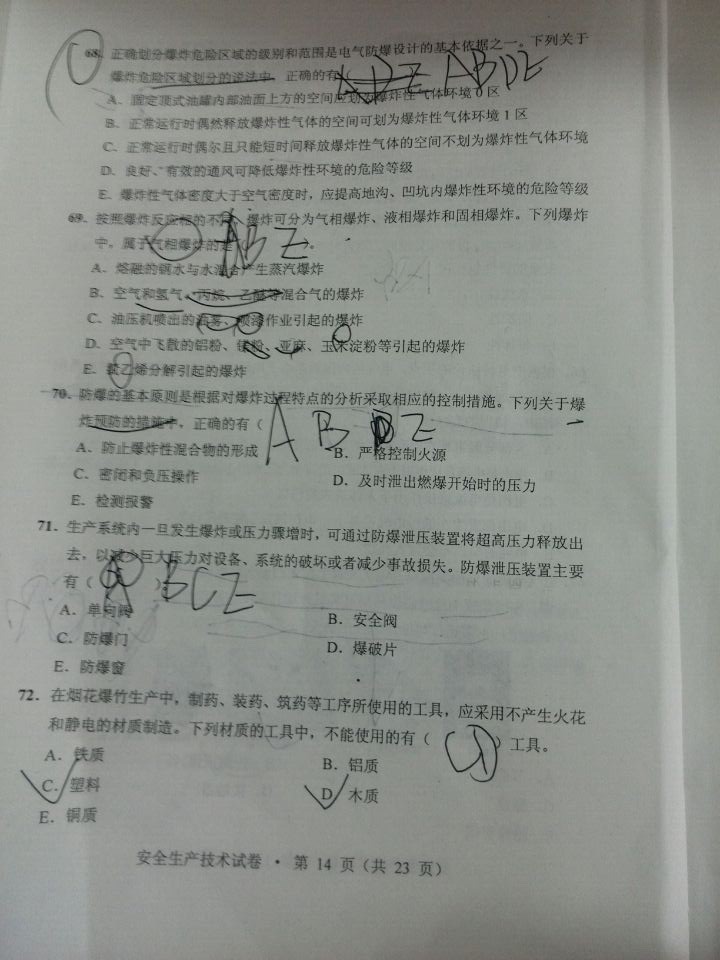 68. 正确划分爆炸危险区域的级别和范围是电气防爆设计的基本依据之一。下列关于
爆炸危险区域划分的说法中，正确的有 ABDE
A. 固定顶式油罐内部油面上方的空间应划为爆炸性气体环境 0 区
B. 正常运行时偶然释放爆炸性气体的空间可划为爆炸性气体环境 1 区
C. 正常运行时偶尔且只能短时间释放爆炸性气体的空间不划为爆炸性气体环境
D. 良好、有效的通风可降低爆炸性环境的危险等级
E. 爆炸性气体密度大于空气密度时，应提高地沟、凹坑内爆炸性环境的危险等级
69. 按照爆炸反应相的不同，爆炸可分为气相爆炸、液相爆炸和固相爆炸。下列爆炸
中，属于气相爆炸的是 ABE 。
A. 熔融的钢水与水混合产生蒸汽爆炸
B. 空气和氢气、丙烷、乙醚等混合气的爆炸
C. 油压机喷出的油雾、喷漆作业引起的爆炸
D. 空气中飞散的铝粉、镁粉、亚麻、玉米淀粉等引起的爆炸
E. 氯乙烯分解引起的爆炸
70. 防爆的基本原则是根据对爆炸过程特点的分析采取相应的控制措施。下列关于爆
炸预防的措施中，正确的有（ A B D E
A. 防止爆炸性混合物的形成 B. 严格控制火源
C. 密闭和负压操作 D. 及时泄出燃爆开始时的压力
E. 检测报警
71. 生产系统内一旦发生爆炸或压力骤增时，可通过防爆泄压装置将超高压力释放出
去，以减少巨大压力对设备、系统的破坏或者减少事故损失。防爆泄压装置主要
有（ BCE
A. 单向阀 B. 安全阀
C. 防爆门 D. 爆破片
E. 防爆窗
72. 在烟花爆竹生产中，制药、装药、筑药等工序所使用的工具，应采用不产生火花
和静电的材质制造。下列材质的工具中，不能使用的有（ CD ）工具。
A. 铁质 B. 铝质
C. 塑料 D. 木质
E. 铜质
安全生产技术试卷 · 第 14 页（共 23 页）